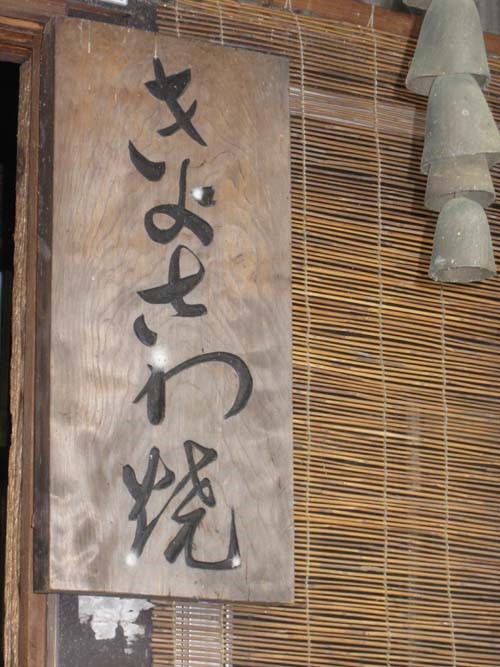 きよさわ焼